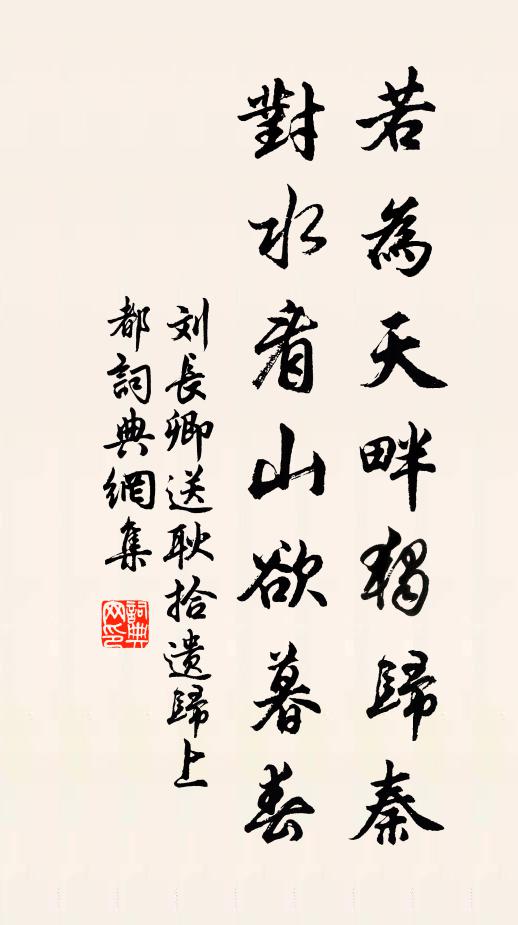 若為天畔獨歸秦
對水看山欲暮春
刘長卿送耿拾遺歸上
都詞典網集
詞典网印